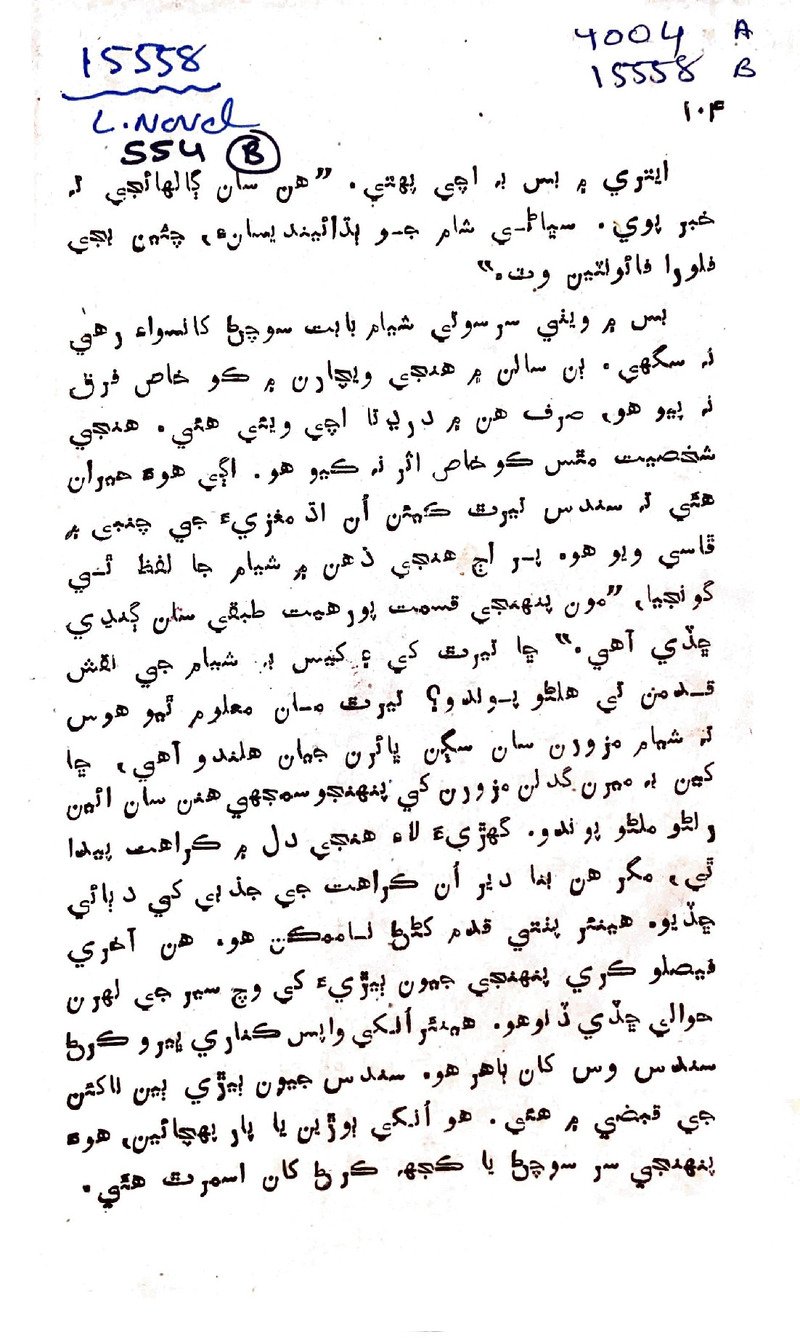 15558
4004 A
15558 B
L. Novel
554 B
١٠۴
ايتري ۾ بس به اچي پهتي. ”هن سان ڳالهائجي ته
خبر پوي. سڀاڻي شام جو ٻڌائيندیسانءِ، چئين بجي
فلورا فائونٽين وٽ.“
بس ۾ ويٺي سرسوتي شيام بابت سوچڻ کانسواءِ رهي
نه سگهي. ٻن سالن ۾ هنجي ويچارن ۾ ڪو خاص فرق
نه پيو هو، صرف هن ۾ درڍتا اچي ويئي هئي. هنجي
شخصيت مٿس ڪو خاص اثر نه ڪيو هو. اڳي هوءَ حيران
هئي ته سندس تيرٿ ڪيئن اُن اڌ مغزيءَ جي چنبي ۾
ڦاسي ويو هو. پر اڄ هنجي ذهن ۾ شيام جا لفظ ٿي
گونجيا، ”مون پنهنجي قسمت پورهيت طبقي سان ڳنڍي
ڇڏي آهي.“ ڇا تيرٿ کي ۽ کيس به شيام جي نقش
قدمن تي هلڻو پوندو؟ تيرٿ مان معلوم ٿيو هوس
ته شيام مزورن سان سڳن ڀائرن جيان هلندو آهي، ڇا
کين به ميرن گدلن مزورن کي پنهنجو سمجهي هنن سان ائين
رلڻو ملڻو پوندو. گهڙيءَ لاءِ هنجي دل ۾ ڪراهت پيدا
ٿي، مگر هن بنا دير اُن ڪراهت جي جذبي کي دٻائي
ڇڏيو. هينئر پنتي قدم کڻڻ ناممڪن هو. هن آخري
فيصلو ڪري پنهنجي جيون ٻيڙيءَ کي وچ سير جي لهرن
حوالي ڇڏي ڏنو هو. هينئر اُنکي واپس ڪناري ڀيرو ڪرڻ
سندس وس کان ٻاهر هو. سندس جيون ٻيڙي ٻين ناکئن
جي قبضي ۾ هئي. هو اُنکي ٻوڙين يا پار پهچائين، هوءَ
پنهنجي سر سوچڻ يا ڪجهه ڪرڻ کان اسمرٿ هئي.